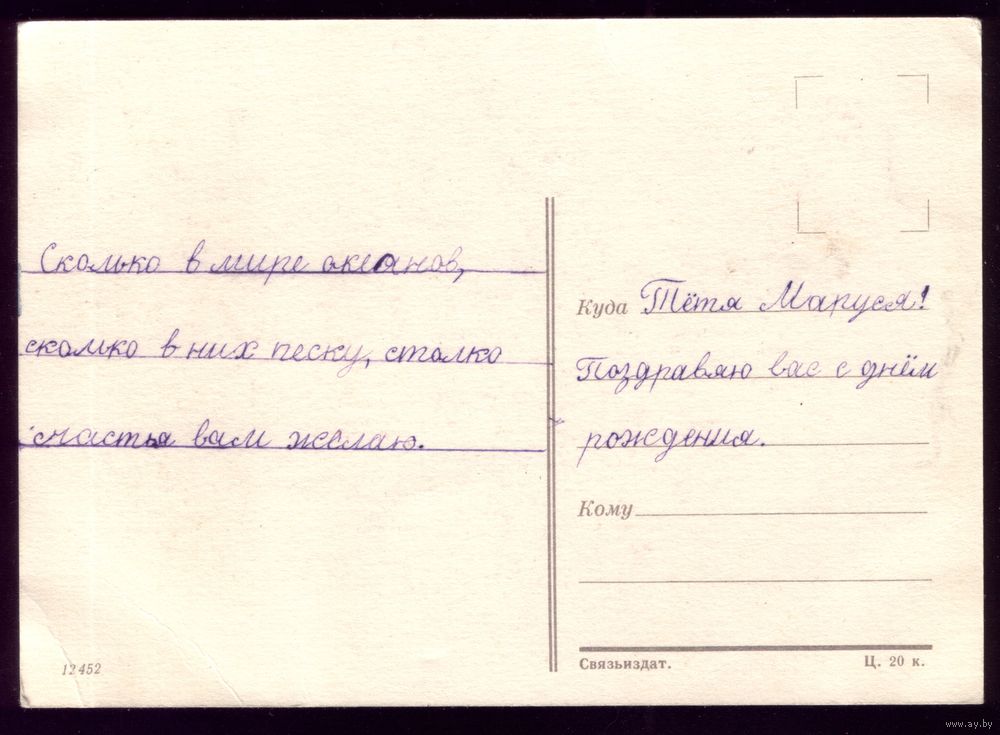 Сколько в мире океанов,
сколько в них песку, столко
счастья вам желаю.
Куда Тётя Маруся!
Поздравяю вас с днём
рождения.
Кому
12452
Связьиздат.
Ц. 20 к.
www.ay.by